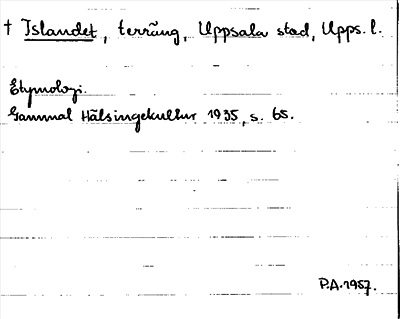 † Islandet, terräng, Uppsala stad, Upps. l.
Etymologi.
Gammal Hälsingekultur 1935, s. 65.
P.A. 1957.